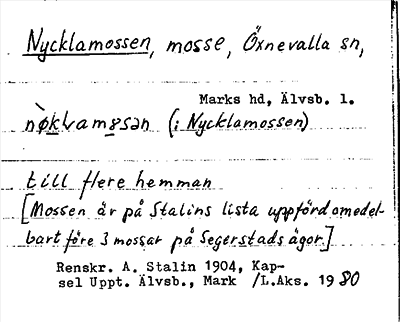 Nycklamossen, mosse, Öxnevalla sn,
Marks hd, Älvsb. l.
(: Nycklamossen)
till flere hemman
[Mossen är på Stalins lista uppförd omedel-
bart före 3 mossar på Segerstads ägor.]
Renskr. A. Stalin 1904, Kap-
sel Uppt. Älvsb., Mark /L.Aks. 1980